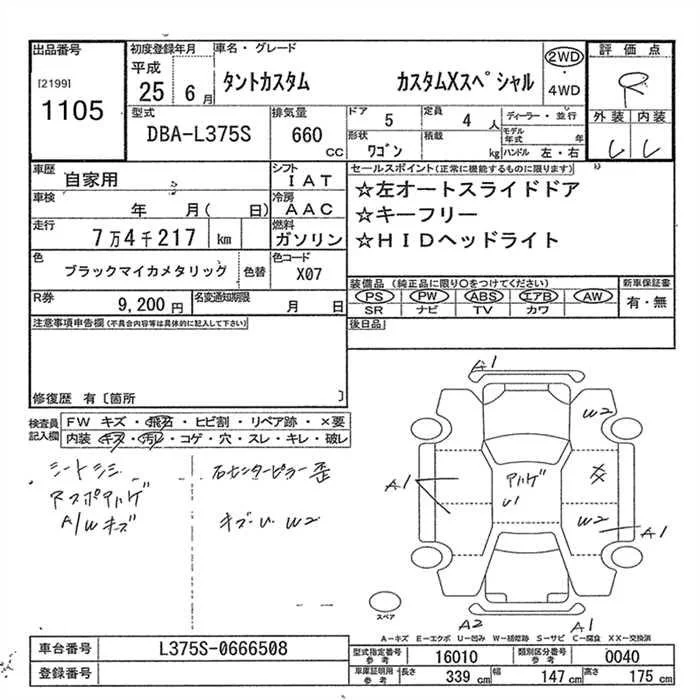 出品番号 初度登録年月 車名・グレード 2WD 評価点
[2199] 平成 4WD R
1105 25 6月 タントカスタム カスタムXスペシャル
型式 排気量 ドア 5 定員 4人 ディーラー・並行 外装 内装
DBA-L375S 660cc 形状 ワゴン 積載 kg モデル年式 年 ハンドル 左・右
車歴 自家用 シフト IAT セールスポイント(正常に機能するものに限ります)
車検 年 月( 日) 冷房 AAC ☆左オートスライドドア
☆キーフリー
走行 7万4千217 km 燃料 ガソリン ☆HIDヘッドライト
色 ブラックマイカメタリック 色替 色コード X07
装備品(純正品に限り○をつけてください) 新車保証書
R券 9,200円 名変通知期限 月 日 PS PW ABS エアB AW 有・無
SR ナビ TV カワ
注意事項申告欄(不具合内容等は具体的に記入して下さい) 後日品
修復歴 有〔箇所 〕
検査員記入欄 FW キズ・飛石・ヒビ割・リペア跡・×要
内装・キズ・汚レ・コゲ・穴・スレ・キレ・破レ
シートシミ 右センターピラー歪
A/Wキズ キズ・U W2
A1
W2
A1 アルゲ
U1
W2 A1
A2 A1
スペア
A-キズ E-エクボ U-凹み W-補修跡 S-サビ C-腐食 XX-交換済
車台番号 L375S-0666508 型式指定番号 参考 16010 類別区分番号 参考 0040
登録番号 車庫証明用 参考 長さ 339cm 幅 147cm 高さ 175cm